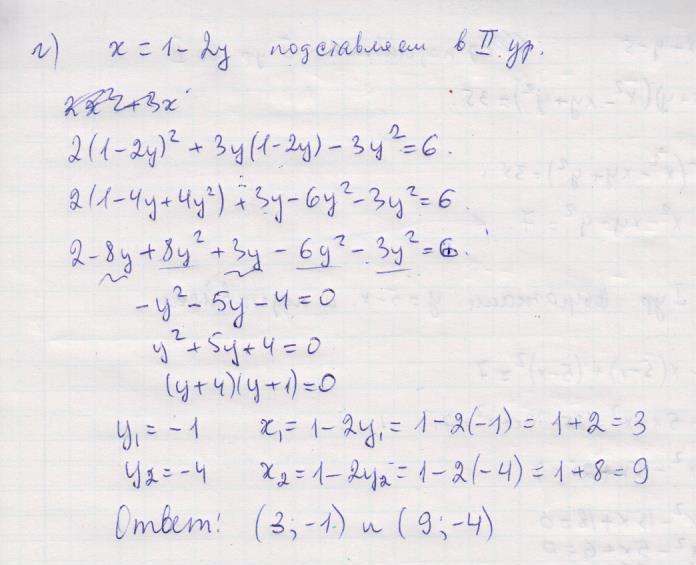 г) x = 1 - 2y подставляем в II ур.
2x² + 3x
2(1-2y)² + 3y(1-2y) - 3y² = 6.
2(1-4y+4y²) + 3y - 6y² - 3y² = 6
2 - 8y + 8y² + 3y - 6y² - 3y² = 6.
-y² - 5y - 4 = 0
y² + 5y + 4 = 0
(y+4)(y+1) = 0
y₁ = -1 x₁ = 1 - 2y₁ = 1 - 2(-1) = 1 + 2 = 3
y₂ = -4 x₂ = 1 - 2y₂ = 1 - 2(-4) = 1 + 8 = 9
Ответ: (3; -1) и (9; -4)